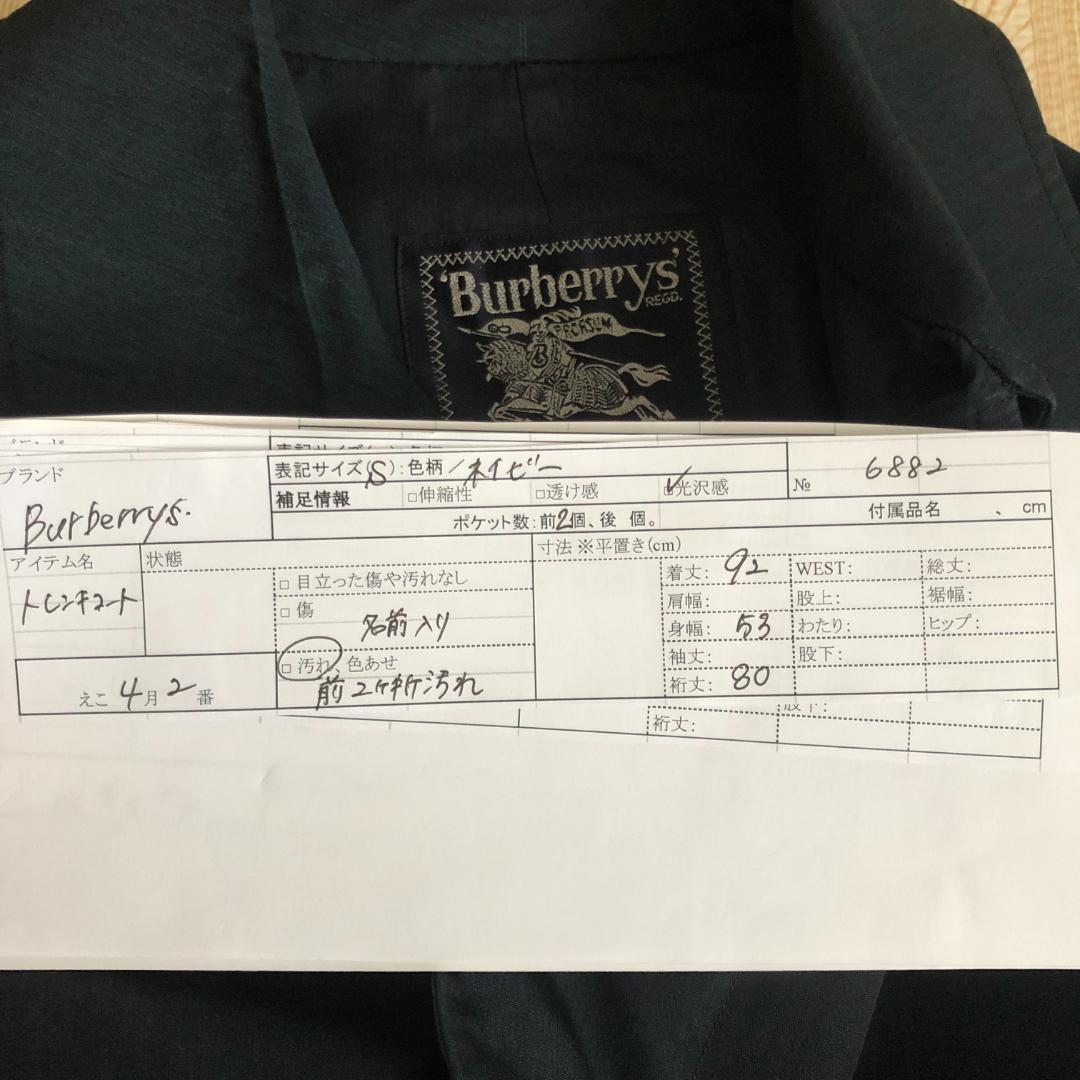 'Burberrys'
REGD.
PRORSUM
B
ブランド
Burberrys.
表記サイズ(S):色柄/ネイビー
補足情報 □伸縮性 □透け感 ✓光沢感
ポケット数:前2個、後 個。
№ 6882
付属品名 、 cm
アイテム名
トレンチコート
状態
□ 目立った傷や汚れなし
□ 傷
名前入り
□ 汚れ、色あせ
前2ヶ所汚れ
えこ 4月2番
寸法 ※平置き(cm)
着丈: 92
肩幅:
身幅: 53
袖丈:
裄丈: 80
WEST:
股上:
わたり:
股下:
総丈:
裾幅:
ヒップ:
裄丈: